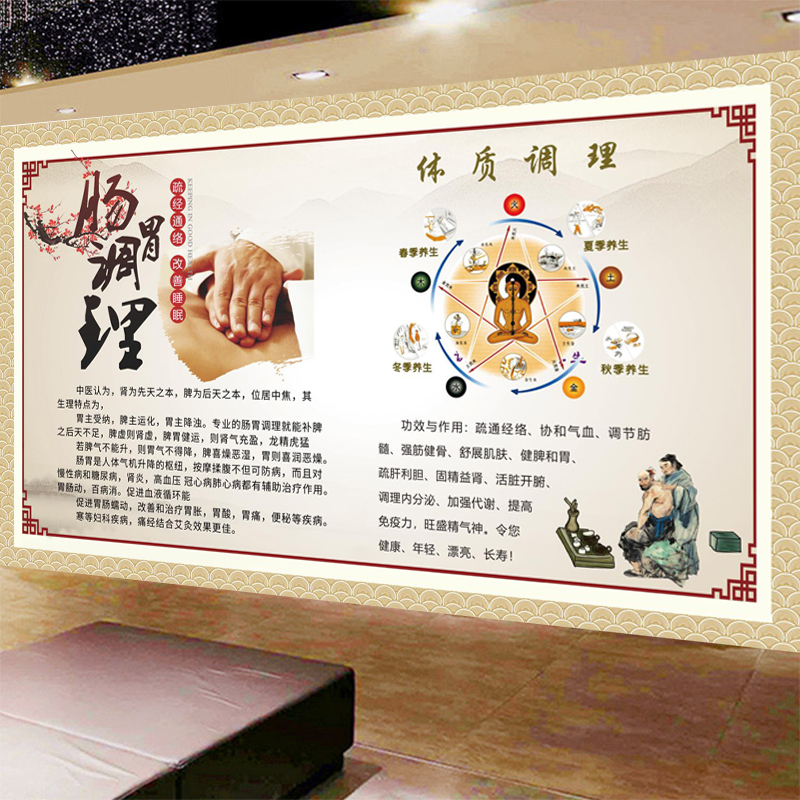 肠胃调理
疏经通络 改善睡眠
KEEPING IN GOOD HEALTH
中医认为，肾为先天之本，脾为后天之本，位居中焦，其
生理特点为，
胃主受纳，脾主运化，胃主降浊。专业的肠胃调理就能补脾
之后天不足，脾虚则肾虚，脾胃健运，则肾气充盈，龙精虎猛
若脾气不能升，则胃气不得降，脾喜燥恶湿，胃则喜润恶燥。
肠胃是人体气机升降的枢纽，按摩揉腹不但可防病，而且对
慢性病和糖尿病，肾炎，高血压 冠心病肺心病都有辅助治疗作用。
胃肠动，百病消。促进血液循环能
促进胃肠蠕动，改善和治疗胃胀，胃酸，胃痛，便秘等疾病。
寒等妇科疾病，痛经结合艾灸效果更佳。
体质调理
火
春季养生
夏季养生
木
土
冬季养生
秋季养生
水
金
功效与作用：疏通经络、协和气血、调节肪
髓、强筋健骨、舒展肌肤、健脾和胃、
疏肝利胆、固精益肾、活脏开腑、
调理内分泌、加强代谢、提高
免疫力，旺盛精气神。令您
健康、年轻、漂亮、长寿！